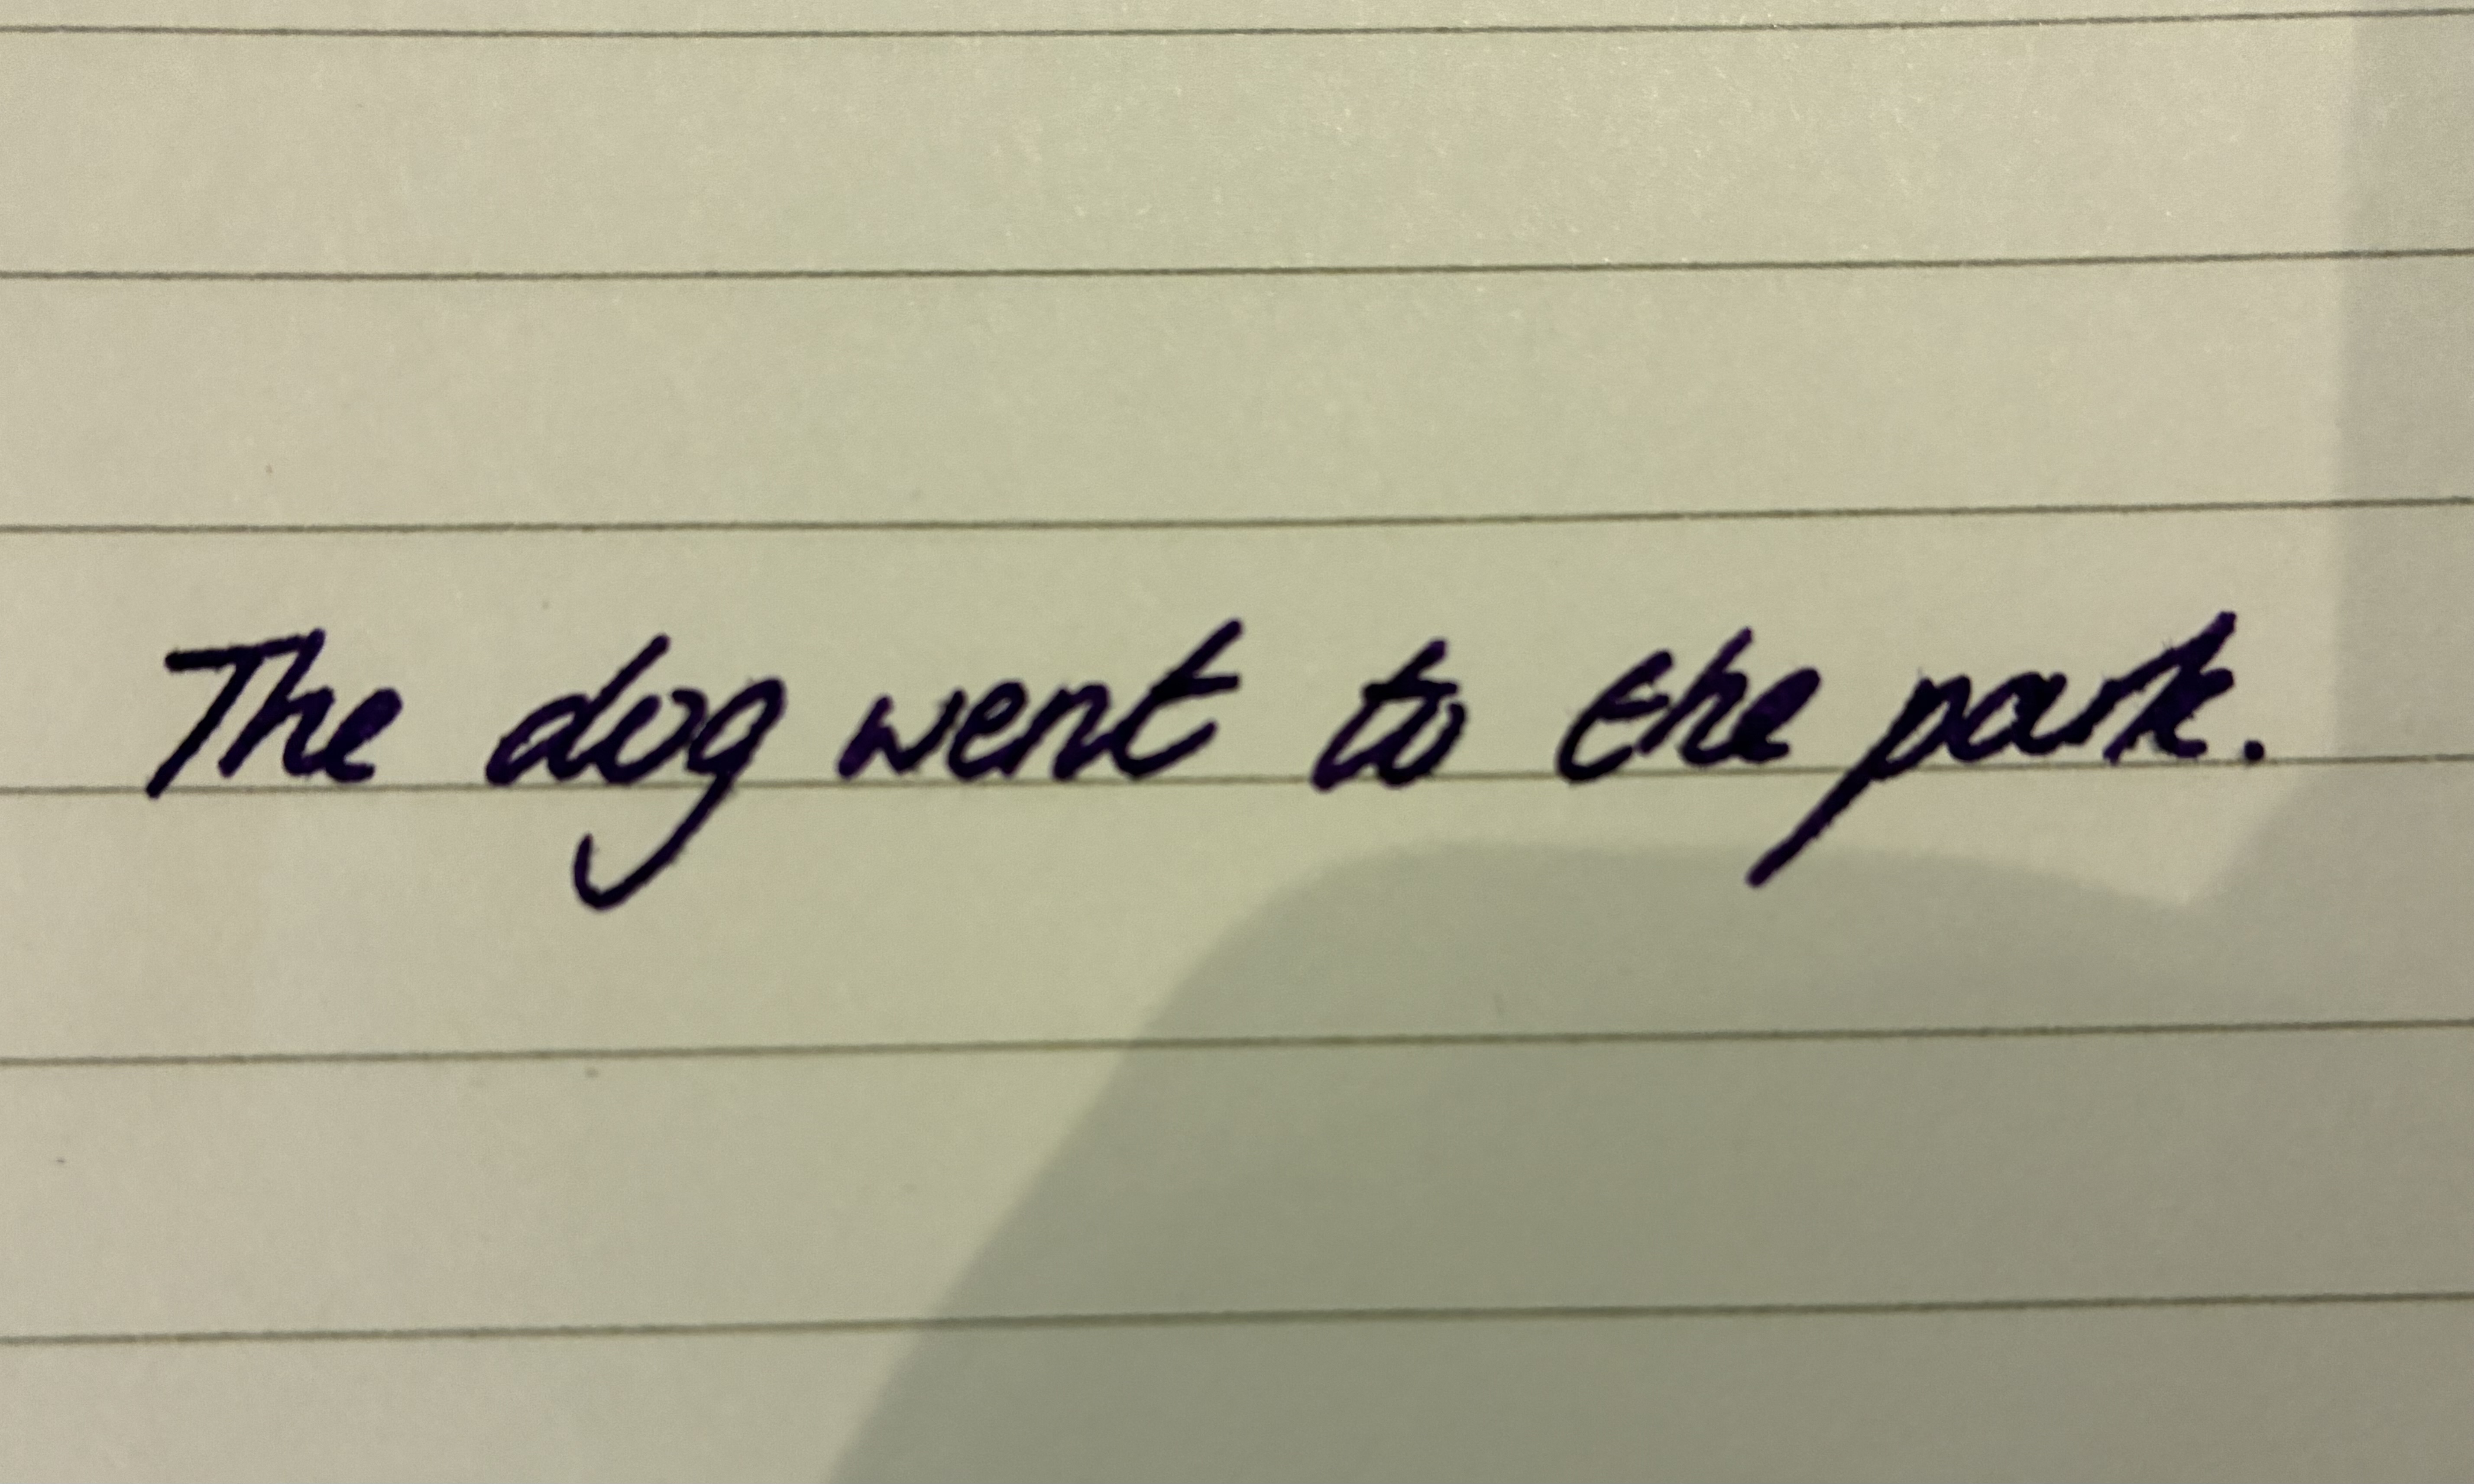 The dog went to the park.